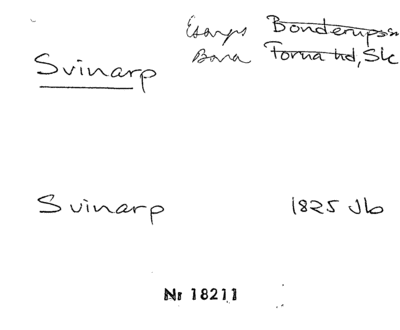 Esarps Bonderups sn
Svinarp Bara Torna hd, Sk
Svinarp 1825 Jb
Nr 18211